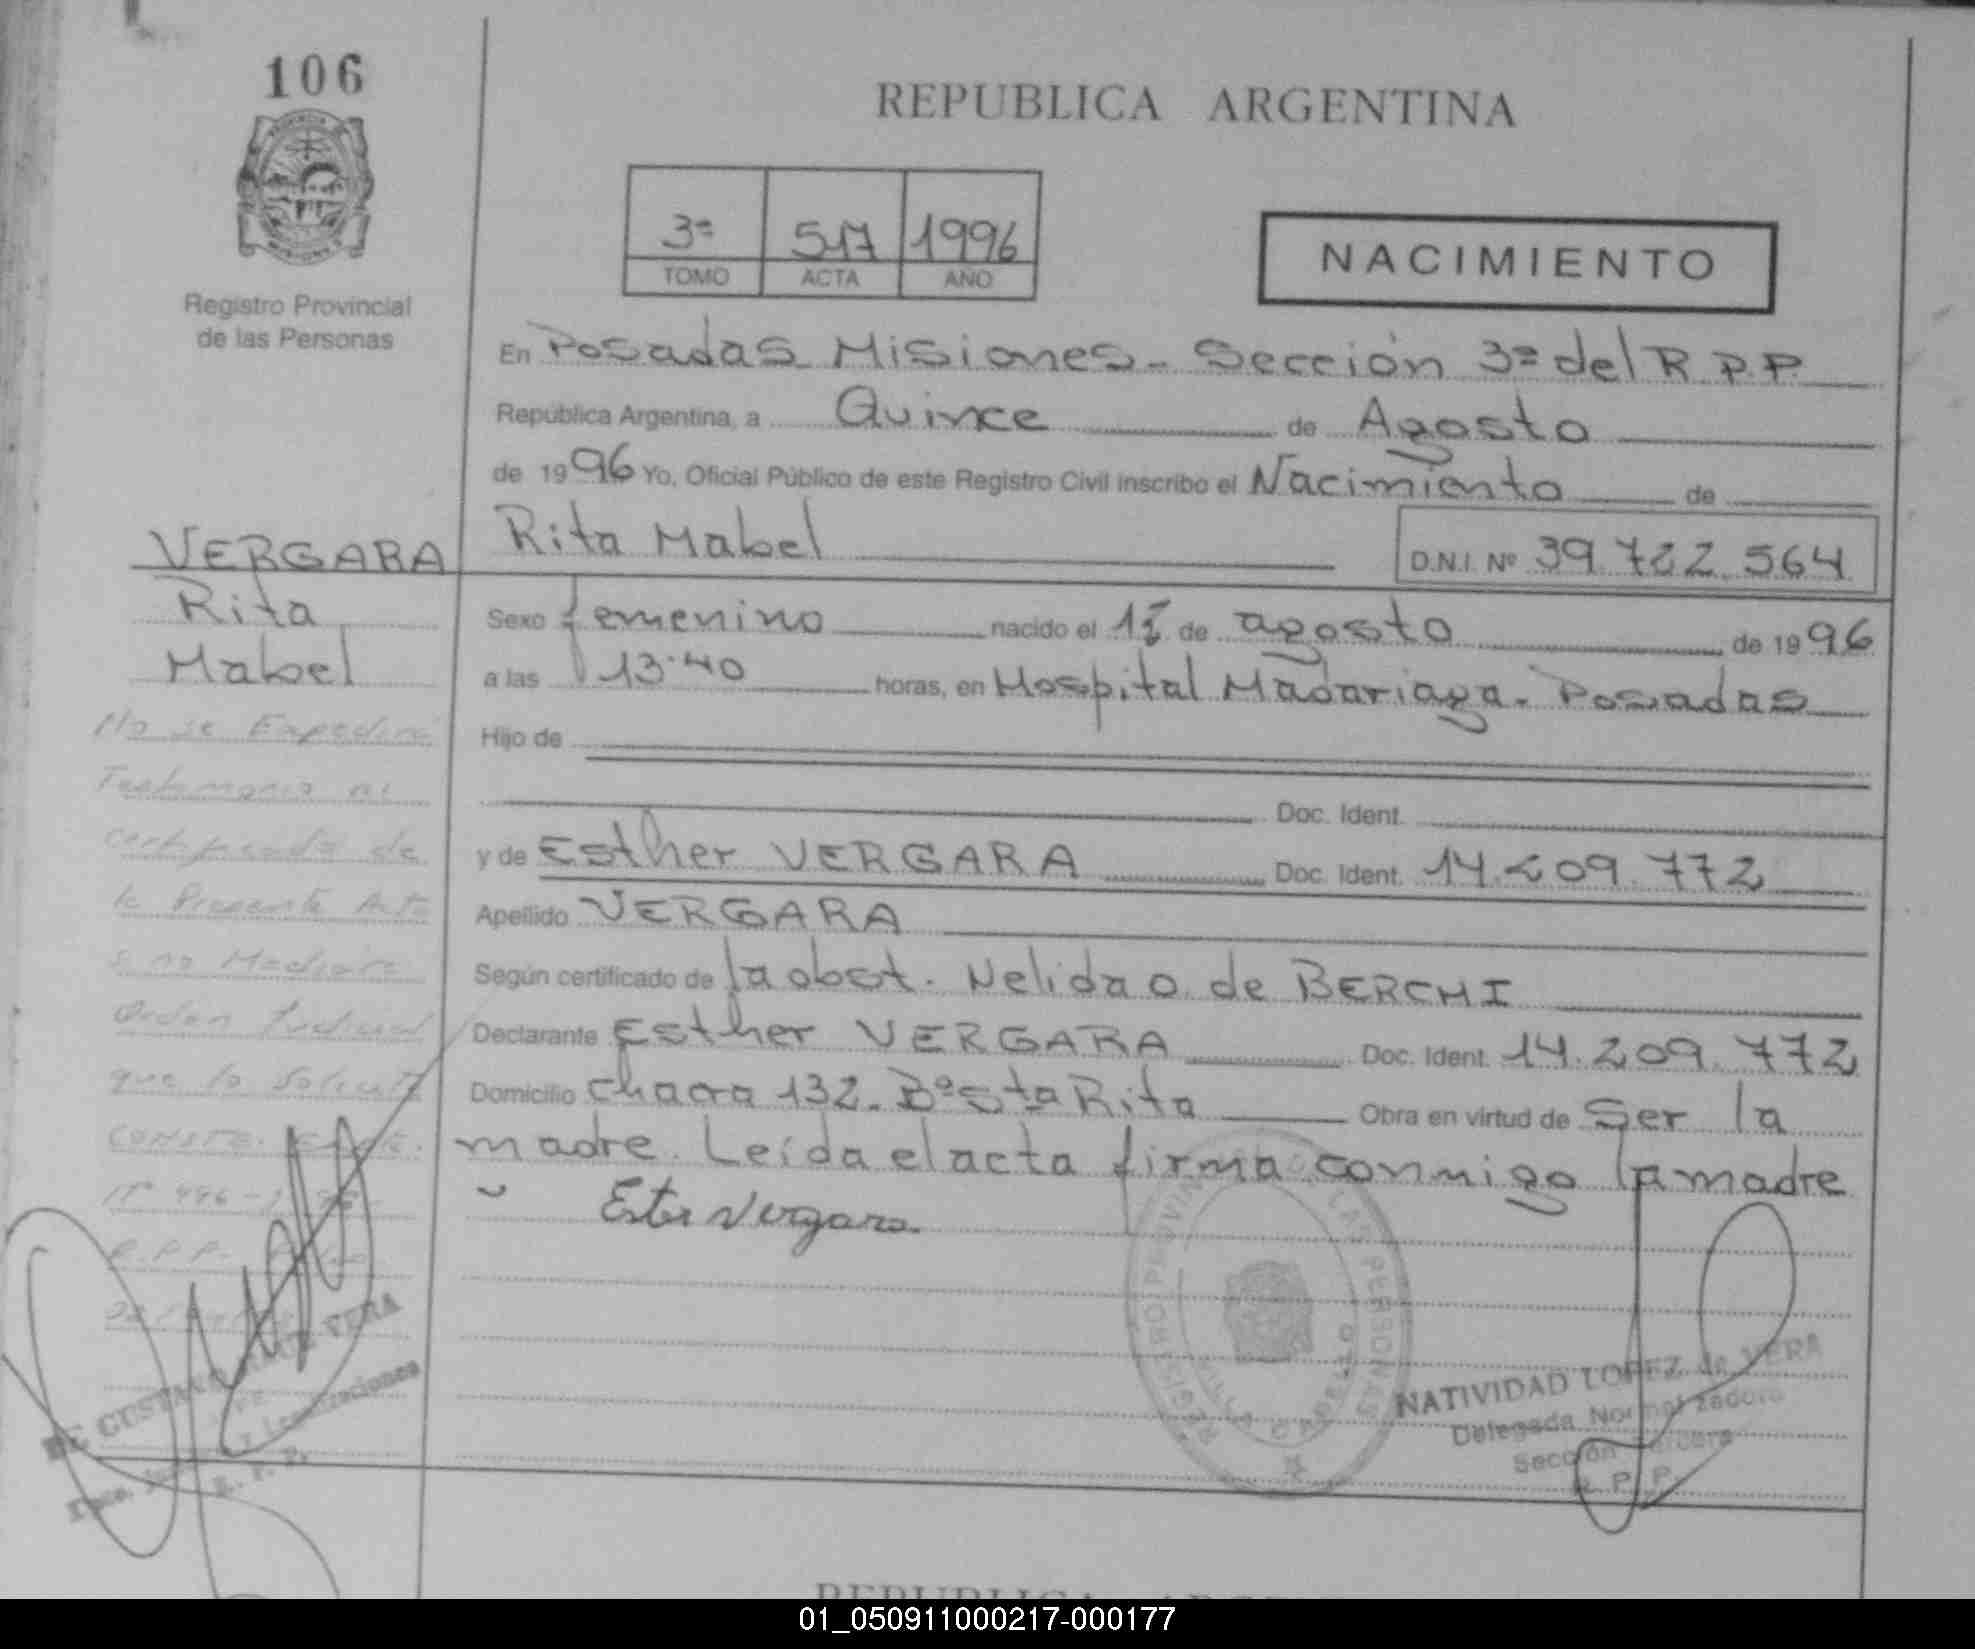 106
REPUBLICA ARGENTINA
3ª 517 1996
TOMO ACTA AÑO
NACIMIENTO
Registro Provincial
de las Personas
En Posadas Misiones - Sección 3ª del R.P.P.
República Argentina, a Quince de Agosto
de 1996 Yo, Oficial Público de este Registro Civil inscribo el Nacimiento de
VERGARA Rita Mabel D.N.I. Nº 39.722.564
Rita
Mabel
Sexo femenino nacido el de agosto de 1996
a las 13.40 horas, en Hospital Madariaga. Posadas
Hijo de
Doc. Ident.
y de Esther VERGARA Doc. Ident. 14.209.772
Apellido VERGARA
Según certificado de la obst. Nelida O. de BERCHI
Declarante Esther VERGARA Doc. Ident. 14.209.772
Domicilio Chacra 132. Bº Sta Rita Obra en virtud de Ser la
madre. Leída el acta firma conmigo la madre
Ester Vergara
No se Expedira
Testimonio ni
certificado de
la Presente Acta
si no Mediare
Orden Judicial
que lo solicite
CONSTE.
R.P.P.
VERA
Legalizaciones
R. P. P.
REGISTRO PROVINCIAL DE LAS PERSONAS
NATIVIDAD LOPEZ de VERA
Delegada Normalizadora
Sección Tercera
R. P. P.
01_050911000217-000177